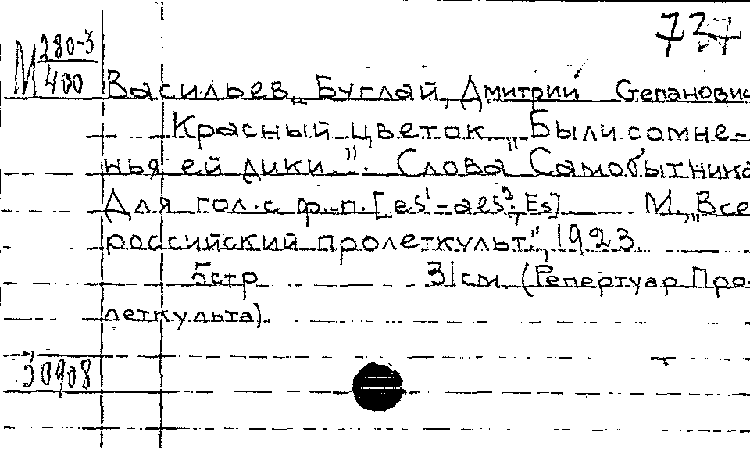 727
М 280-3
400
Васильев-Буглай, Дмитрий Степанович
Красный цветок „Были сомне-
нья ей дики.". Слова Самобытника
Для гол. с ф.-п. [es¹-as²; Es] М., „Все
российский пролеткульт", 1923.
5 стр 31 см. (Репертуар Про-
леткульта).
30908